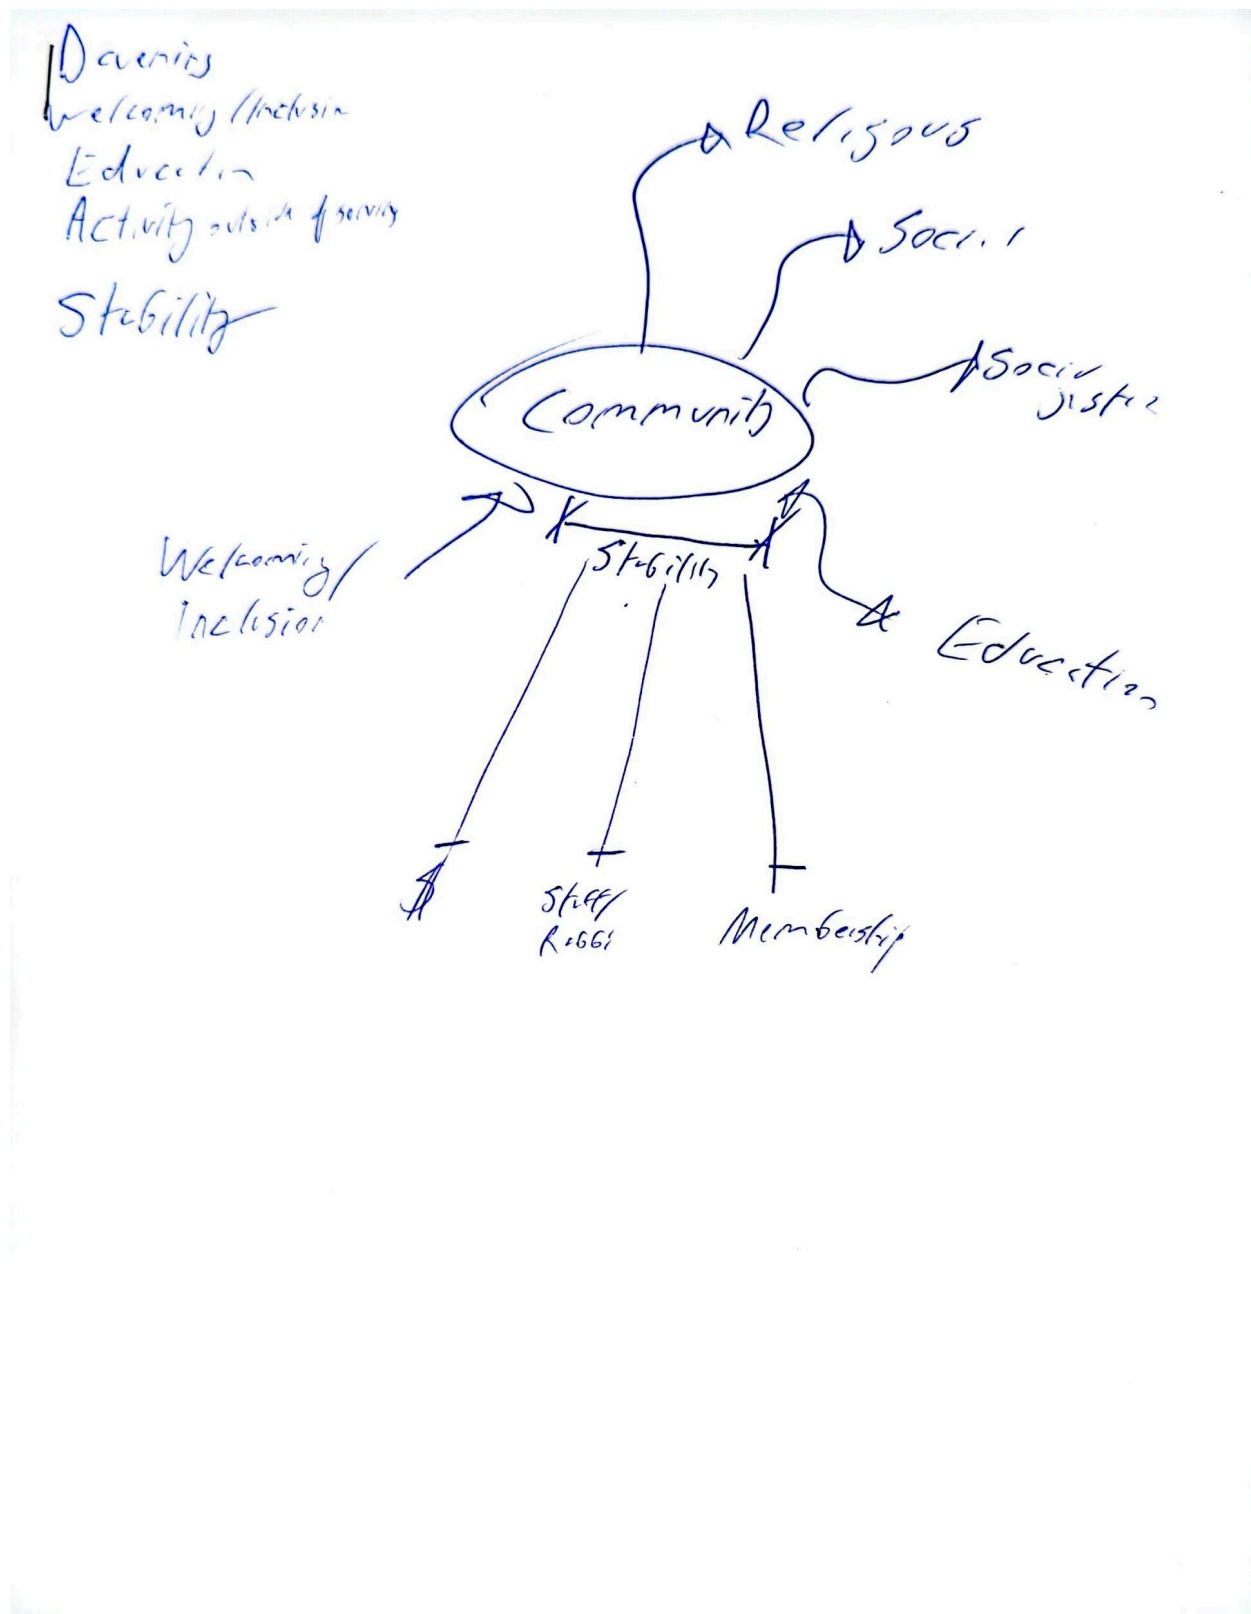 Davening
Welcoming/Inclusion
Education
Activity outside of service
Stability
Religous
Social
Community
Social
justice
Stability
Welcoming/
Inclusion
Education
$
Staff/
Rabbi
Membership